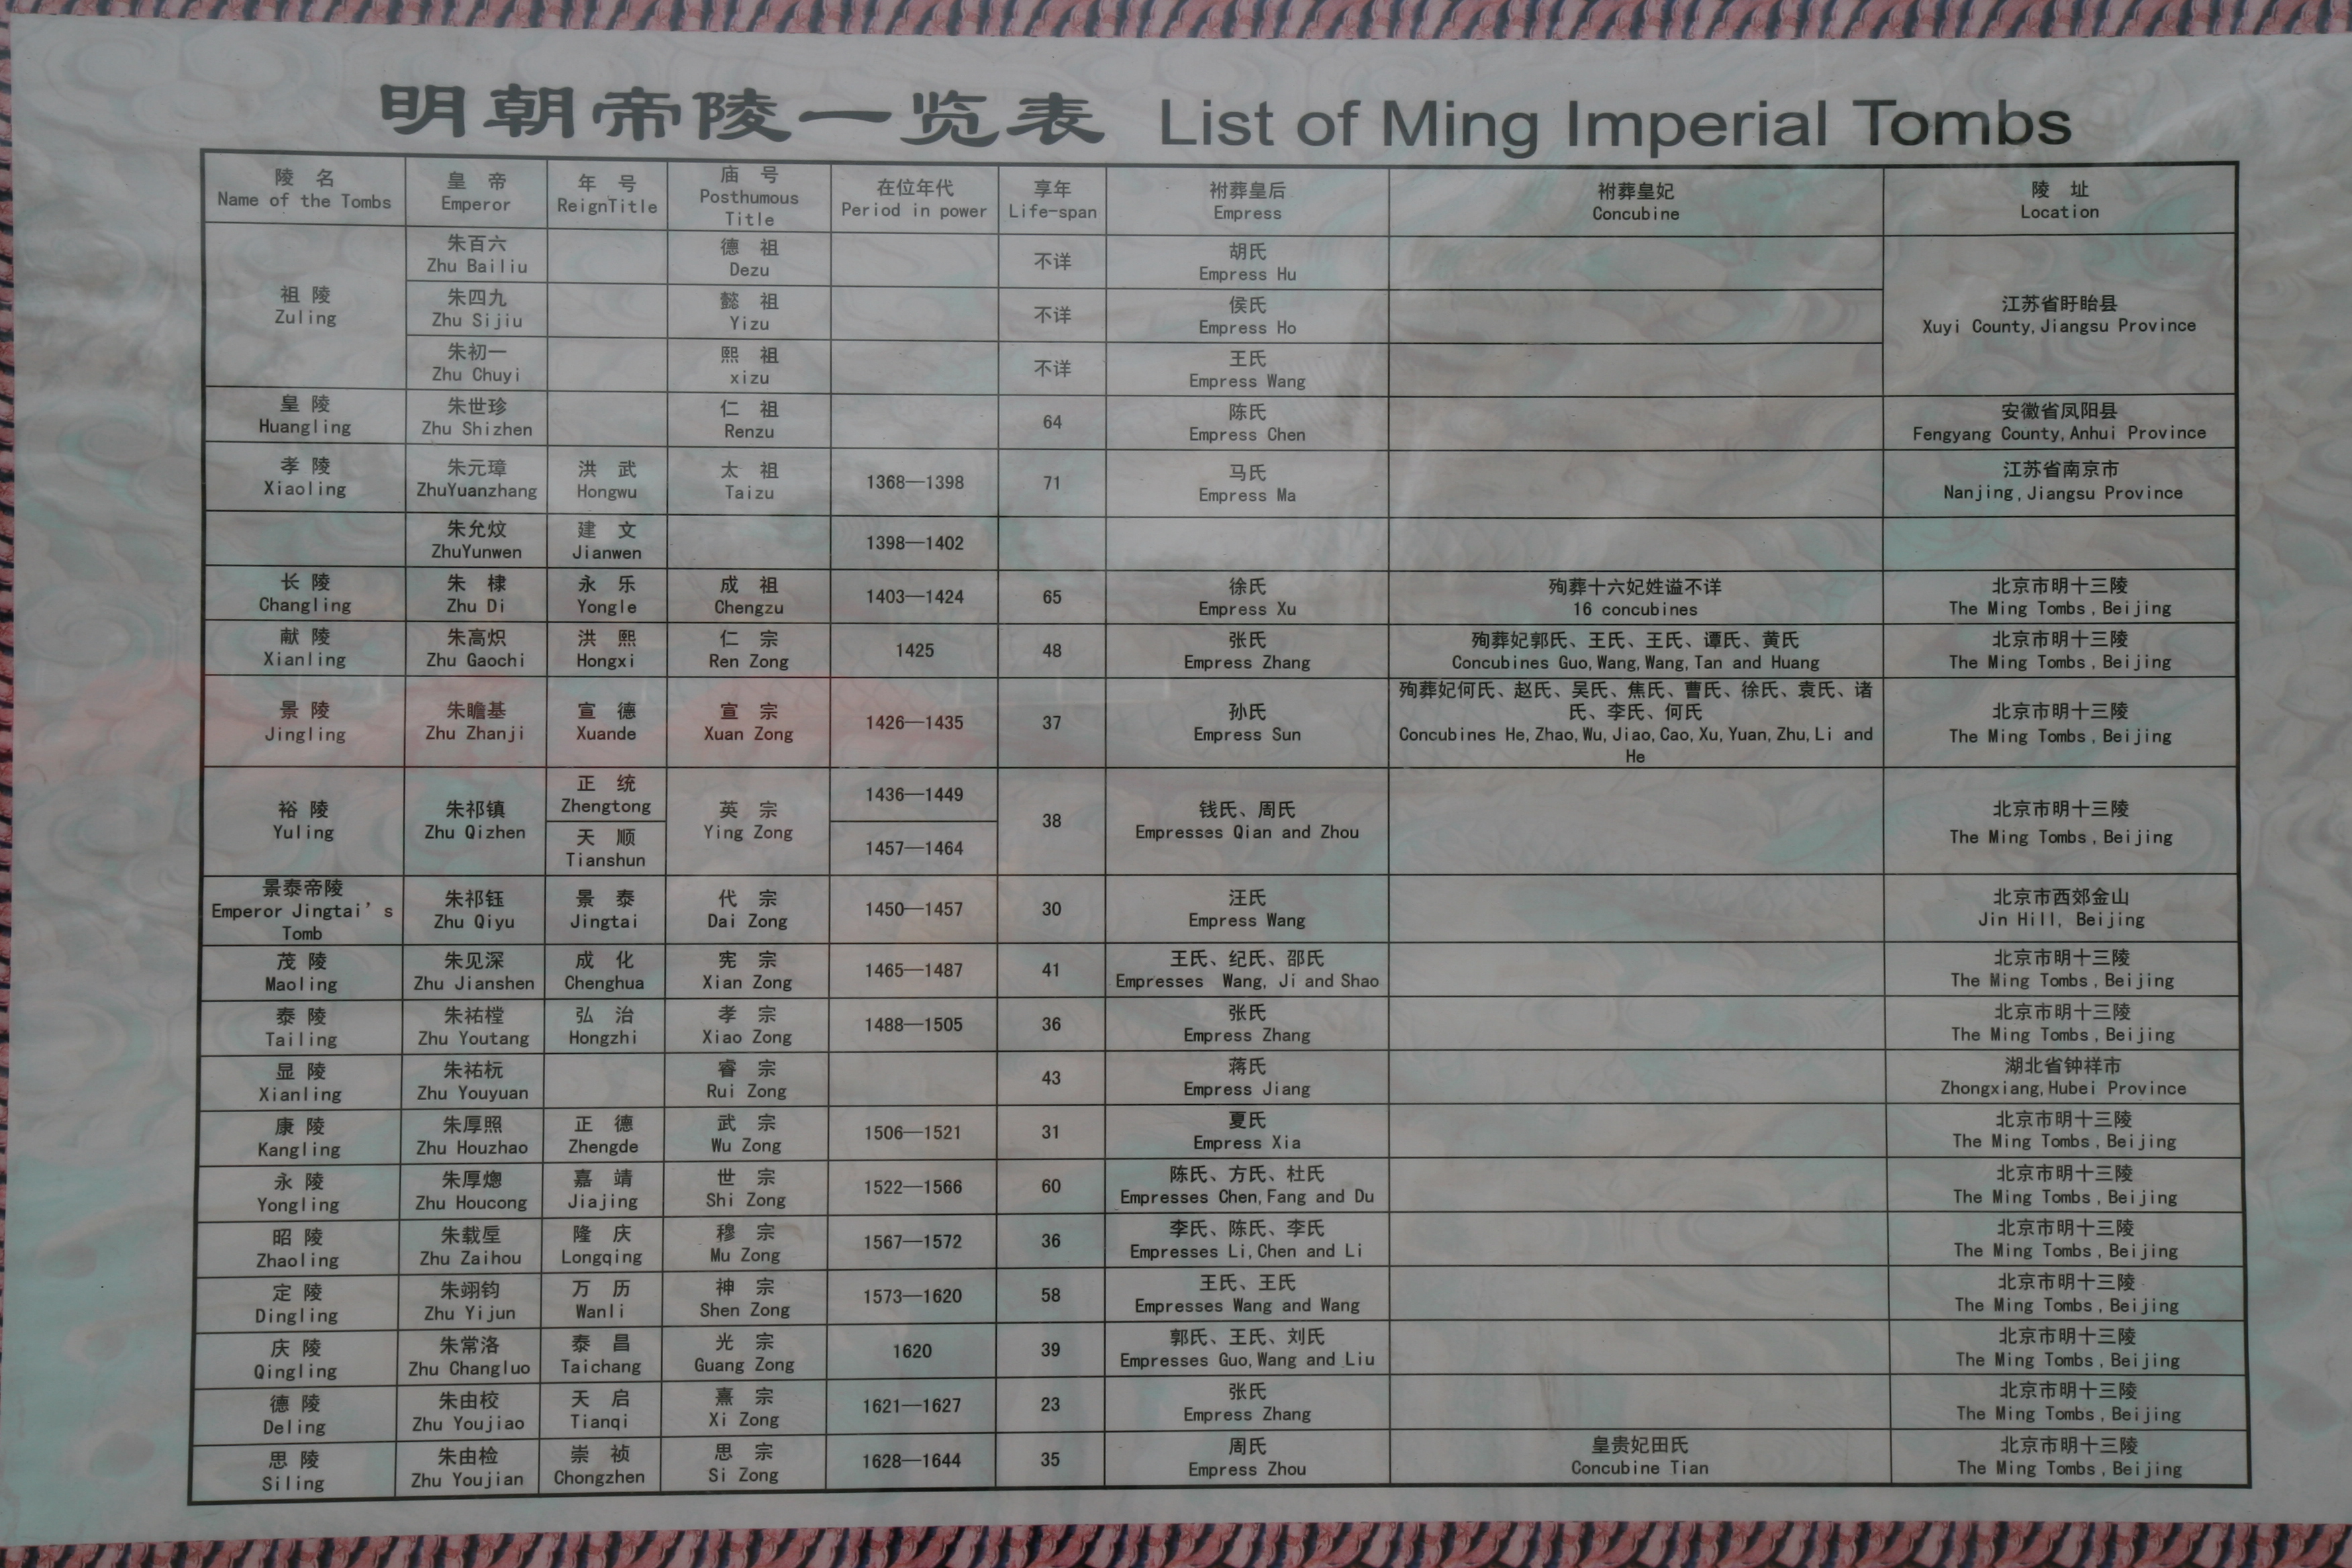 明朝帝陵一览表 List of Ming Imperial Tombs
陵 名 皇 帝 年 号 庙 号 在位年代 享年 祔葬皇后 祔葬皇妃 陵 址
Name of the Tombs Emperor ReignTitle Posthumous Title Period in power Life-span Empress Concubine Location
祖 陵 朱百六 德 祖 不详 胡氏 江苏省盱眙县
Zuling Zhu Bailiu Dezu Empress Hu Xuyi County,Jiangsu Province
朱四九 懿 祖 不详 侯氏
Zhu Sijiu Yizu Empress Ho
朱初一 熙 祖 不详 王氏
Zhu Chuyi xizu Empress Wang
皇 陵 朱世珍 仁 祖 64 陈氏 安徽省凤阳县
Huangling Zhu Shizhen Renzu Empress Chen Fengyang County,Anhui Province
孝 陵 朱元璋 洪 武 太 祖 1368—1398 71 马氏 江苏省南京市
Xiaoling ZhuYuanzhang Hongwu Taizu Empress Ma Nanjing,Jiangsu Province
朱允炆 建 文 1398—1402
ZhuYunwen Jianwen
长 陵 朱 棣 永 乐 成 祖 1403—1424 65 徐氏 殉葬十六妃姓谥不详 北京市明十三陵
Changling Zhu Di Yongle Chengzu Empress Xu 16 concubines The Ming Tombs,Beijing
献 陵 朱高炽 洪 熙 仁 宗 1425 48 张氏 殉葬妃郭氏、王氏、王氏、谭氏、黄氏 北京市明十三陵
Xianling Zhu Gaochi Hongxi Ren Zong Empress Zhang Concubines Guo,Wang,Wang,Tan and Huang The Ming Tombs,Beijing
景 陵 朱瞻基 宣 德 宣 宗 1426—1435 37 孙氏 殉葬妃何氏、赵氏、吴氏、焦氏、曹氏、徐氏、袁氏、诸 北京市明十三陵
氏、李氏、何氏
Jingling Zhu Zhanji Xuande Xuan Zong Empress Sun Concubines He,Zhao,Wu,Jiao,Cao,Xu,Yuan,Zhu,Li and The Ming Tombs,Beijing
He
裕 陵 朱祁镇 正 统 英 宗 1436—1449 38 钱氏、周氏 北京市明十三陵
Yuling Zhu Qizhen Zhengtong Ying Zong Empresses Qian and Zhou The Ming Tombs,Beijing
天 顺 1457—1464
Tianshun
景泰帝陵 朱祁钰 景 泰 代 宗 1450—1457 30 汪氏 北京市西郊金山
Emperor Jingtai's Zhu Qiyu Jingtai Dai Zong Empress Wang Jin Hill, Beijing
Tomb
茂 陵 朱见深 成 化 宪 宗 1465—1487 41 王氏、纪氏、邵氏 北京市明十三陵
Maoling Zhu Jianshen Chenghua Xian Zong Empresses Wang, Ji and Shao The Ming Tombs,Beijing
泰 陵 朱祐樘 弘 治 孝 宗 1488—1505 36 张氏 北京市明十三陵
Tailing Zhu Youtang Hongzhi Xiao Zong Empress Zhang The Ming Tombs,Beijing
显 陵 朱祐杬 睿 宗 43 蒋氏 湖北省钟祥市
Xianling Zhu Youyuan Rui Zong Empress Jiang Zhongxiang,Hubei Province
康 陵 朱厚照 正 德 武 宗 1506—1521 31 夏氏 北京市明十三陵
Kangling Zhu Houzhao Zhengde Wu Zong Empress Xia The Ming Tombs,Beijing
永 陵 朱厚熜 嘉 靖 世 宗 1522—1566 60 陈氏、方氏、杜氏 北京市明十三陵
Yongling Zhu Houcong Jiajing Shi Zong Empresses Chen,Fang and Du The Ming Tombs,Beijing
昭 陵 朱载垕 隆 庆 穆 宗 1567—1572 36 李氏、陈氏、李氏 北京市明十三陵
Zhaoling Zhu Zaihou Longqing Mu Zong Empresses Li,Chen and Li The Ming Tombs,Beijing
定 陵 朱翊钧 万 历 神 宗 1573—1620 58 王氏、王氏 北京市明十三陵
Dingling Zhu Yijun Wanli Shen Zong Empresses Wang and Wang The Ming Tombs,Beijing
庆 陵 朱常洛 泰 昌 光 宗 1620 39 郭氏、王氏、刘氏 北京市明十三陵
Qingling Zhu Changluo Taichang Guang Zong Empresses Guo,Wang and Liu The Ming Tombs,Beijing
德 陵 朱由校 天 启 熹 宗 1621—1627 23 张氏 北京市明十三陵
Deling Zhu Youjiao Tianqi Xi Zong Empress Zhang The Ming Tombs,Beijing
思 陵 朱由检 崇 祯 思 宗 1628—1644 35 周氏 皇贵妃田氏 北京市明十三陵
Siling Zhu Youjian Chongzhen Si Zong Empress Zhou Concubine Tian The Ming Tombs,Beijing